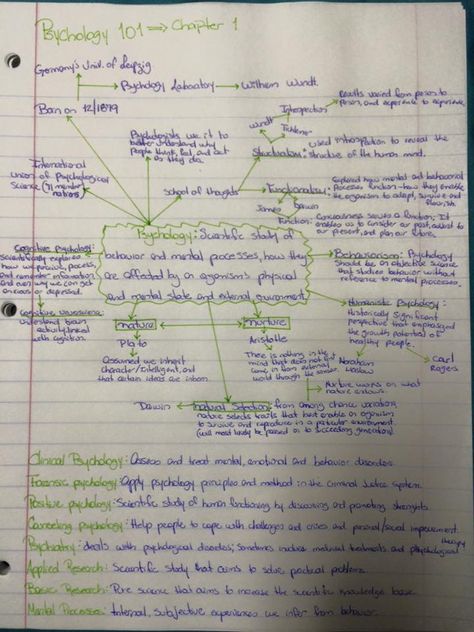 Psychology 101 ⇒ Chapter 1
Germany's Univ. of Leipzig
Psychology Laboratory → Wilhem Wundt
Born on 12/1879
Psychologists use it to
better understand why
people think, feel, and act
as they do.
Introspection
Results varied from person to
person, and experience to experience
Wundt
Tichener
Structuralism:
used introspection to reveal the
structure of the human mind.
International
Union of Psychological
Science (71 member
nations)
School of thoughts
Functionalism:
Explored how mental and behavioral
Processes function - how they enable
the organism to adapt, survive and
flourish.
James
Darwin
Function: Consciousness serves a function: It
enables us to consider our past, adapt to
our present, and plan our future.
Psychology: Scientific study of
behavior and mental processes, how they
are affected by an organism's physical
and mental state and external environment.
Cognitive Psychology:
Scientifically explores
how we perceive, process,
and remember information,
and even why we can get
anxious or depressed.
Cognitive Neuroscience:
Understand brain
activity linked
with cognition.
Behaviorism: Psychology
should be an objective science
that studies behavior without
reference to mental processes.
Humanistic Psychology:
Historically significant
perspective that emphasized
the growth potential of
healthy people.
Abraham
Maslow
Carl
Rogers
nature
Plato
Assumed we inherit
character/intelligent, and
that certain ideas are inborn.
nurture
Aristotle
There is nothing in the
mind that does not first
come in from external
world through the senses.
Nurture works on what
nature endows.
Darwin
natural selection: from among chance variations,
nature selects traits that best enable an organism
to survive and reproduce in a particular environment.
(will most likely be passed on to succeeding generations)
Clinical Psychology: Assess and treat mental, emotional and behavior disorders.
Forensic psychology: Apply psychology principles and method in the Criminal Justice system.
Positive psychology: Scientific study of human functioning by discovering and promoting strengths.
Counseling psychology: Help people to cope with challenges and crises and personal/social improvement.
Psychiatry: deals with psychological disorders; sometimes involves medical treatments and psychological therapy
Applied Research: Scientific study that aims to solve practical problems.
Basic Research: Pure science that aims to increase the scientific knowledge base.
Mental Processes: Internal, subjective experiences we infer from behavior.